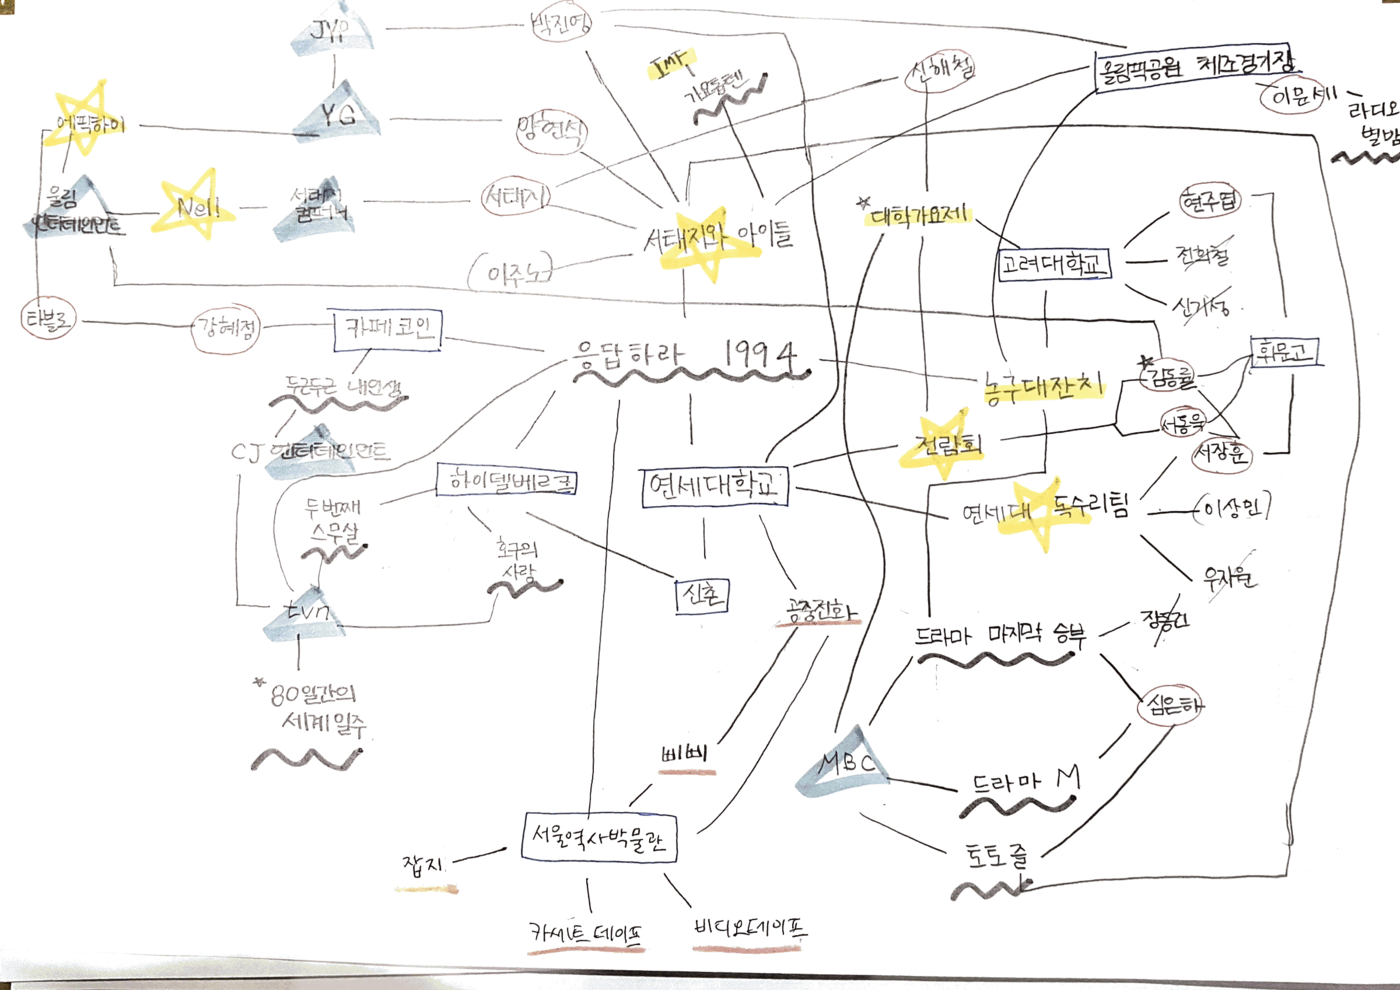 JYP
박진영
올림픽공원 체조경기장
IMF
가요톱텐
신해철
이문세
라디오
별밤
에픽하이
YG
양현석
울림
인터테인먼트
Nell
서태지
컴퍼니
서태지
대학가요제
현주엽
서태지와 아이들
고려대학교
전희철
(이주노)
신기성
타블로
강혜정
카페코인
응답하라 1994
휘문고
두근두근 내인생
농구대잔치
김동률
서동욱
CJ 엔터테인먼트
전람회
서장훈
하이델베르크
연세대학교
두번째
스무살
연세대 독수리팀
(이상민)
호구의
사랑
우지원
tvn
신촌
공중전화
드라마 마지막 승부
장동건
80일간의
세계일주
심은하
삐삐
MBC
드라마 M
서울역사박물관
잡지
토토즐
카세트 테이프
비디오테이프